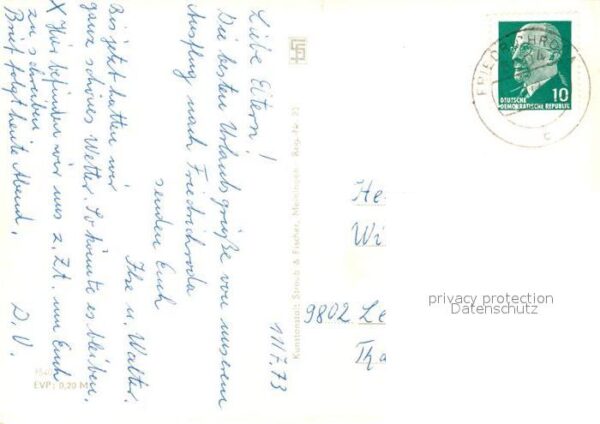 Liebe Eltern!
Die besten Urlaubsgrüße von unserem
Ausflug nach Friedrichroda
senden Euch
Ilse u. Walter.
Bis jetzt hatten wir
ganz schönes Wetter. So könnte es bleiben.
X Hier befinden wir uns z. Zt. um Euch
zu schreiben
Brief folgt heute Abend.
D. O.
11/7.73
EVP: 0,20 M
Kunstanstalt Straub & Fischer, Meiningen
FRIEDRICHRODA
10
DEUTSCHE
DEMOKRATISCHE REPUBLIK
c
He
Wi
9802 Le
Tha
privacy protection
Datenschutz